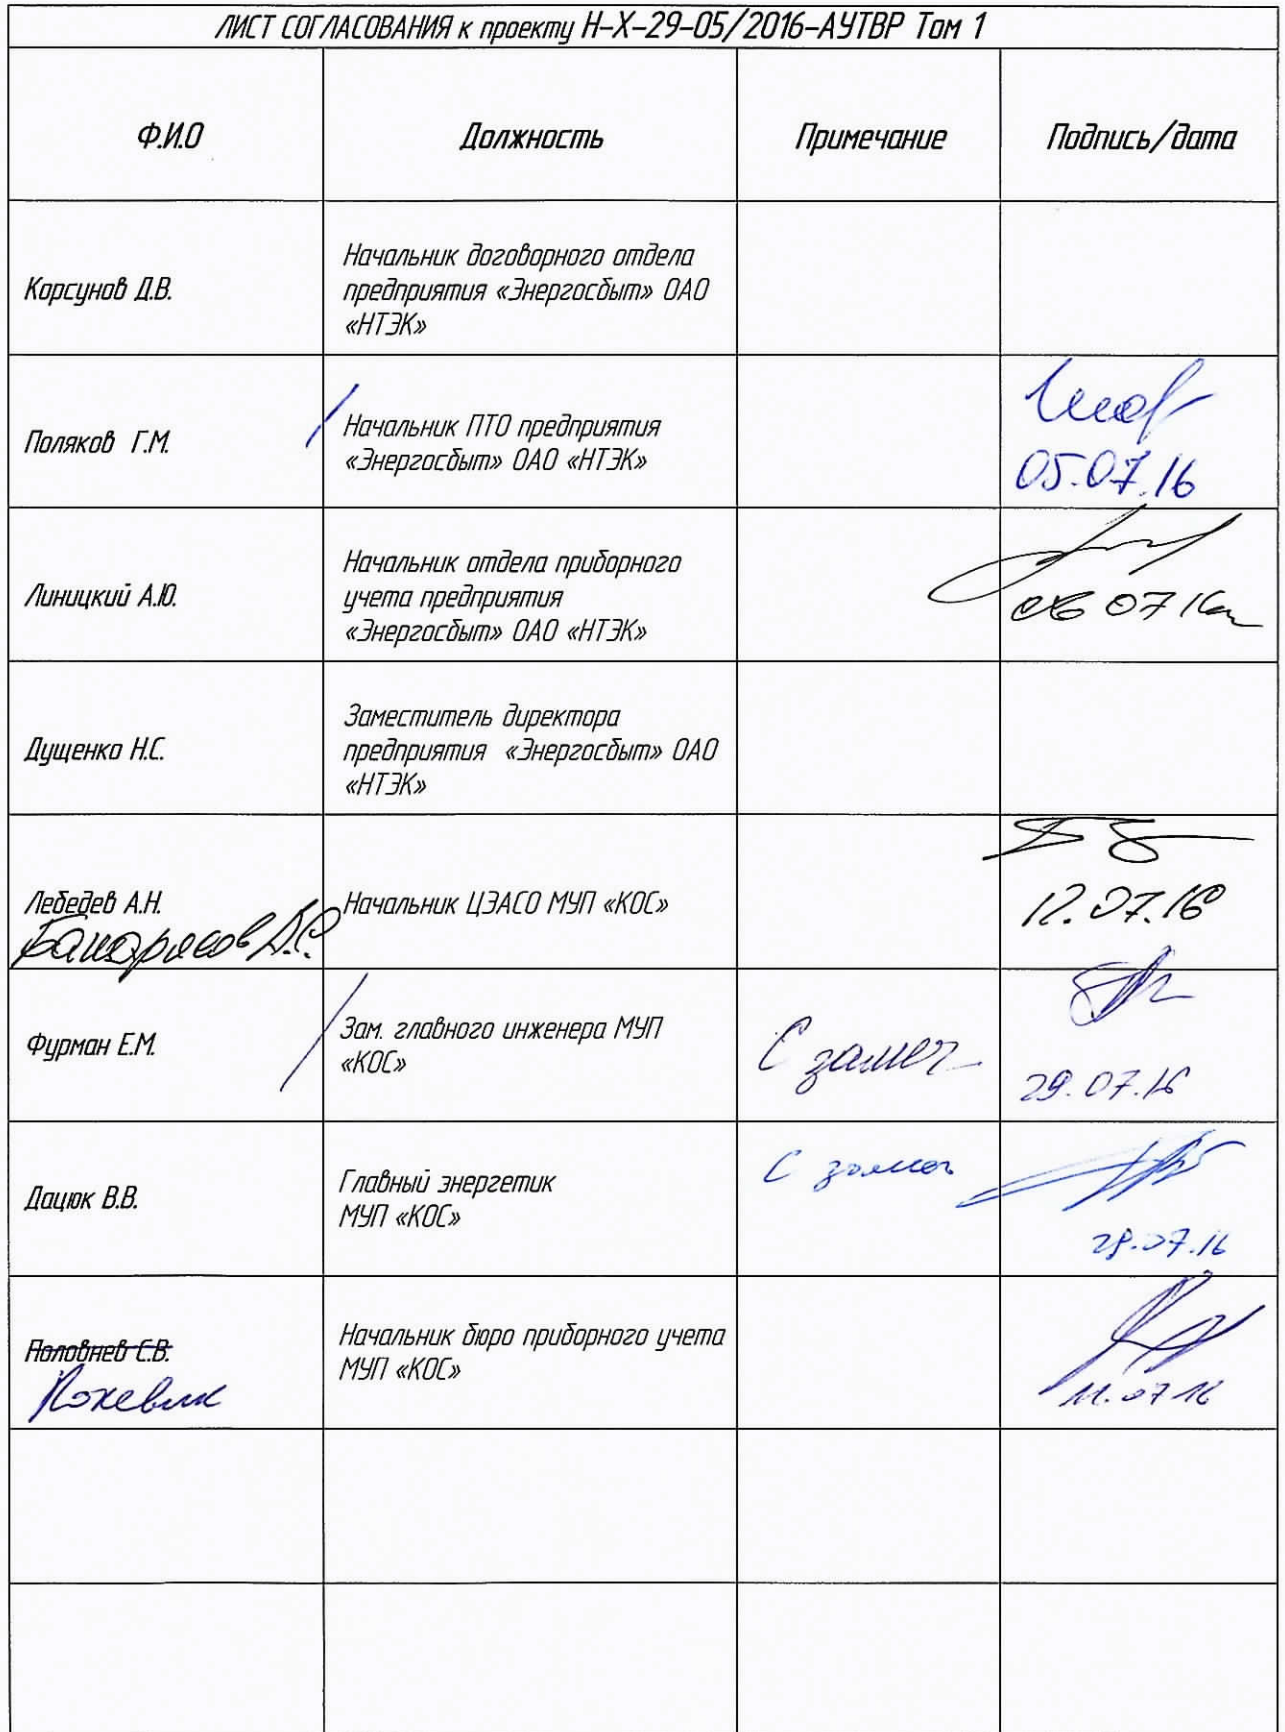 ЛИСТ СОГЛАСОВАНИЯ к проекту Н-Х-29-05/2016-АУТВР Том 1
Ф.И.О Должность Примечание Подпись/дата
Корсунов Д.В.
Начальник договорного отдела
предприятия «Энергосбыт» ОАО
«НТЭК»
Поляков Г.М.
Начальник ПТО предприятия
«Энергосбыт» ОАО «НТЭК»
05.07.16
Линицкий А.Ю.
Начальник отдела приборного
учета предприятия
«Энергосбыт» ОАО «НТЭК»
06 07 16
Дущенко Н.С.
Заместитель директора
предприятия «Энергосбыт» ОАО
«НТЭК»
Лебедев А.Н.
Начальник ЦЭАСО МУП «КОС»
12.07.16
Фурман Е.М.
Зам. главного инженера МУП
«КОС»
С замеч
29.07.16
Дацюк В.В.
Главный энергетик
МУП «КОС»
С замеч
Половнев С.В.
Начальник бюро приборного учета
МУП «КОС»
11.07.16